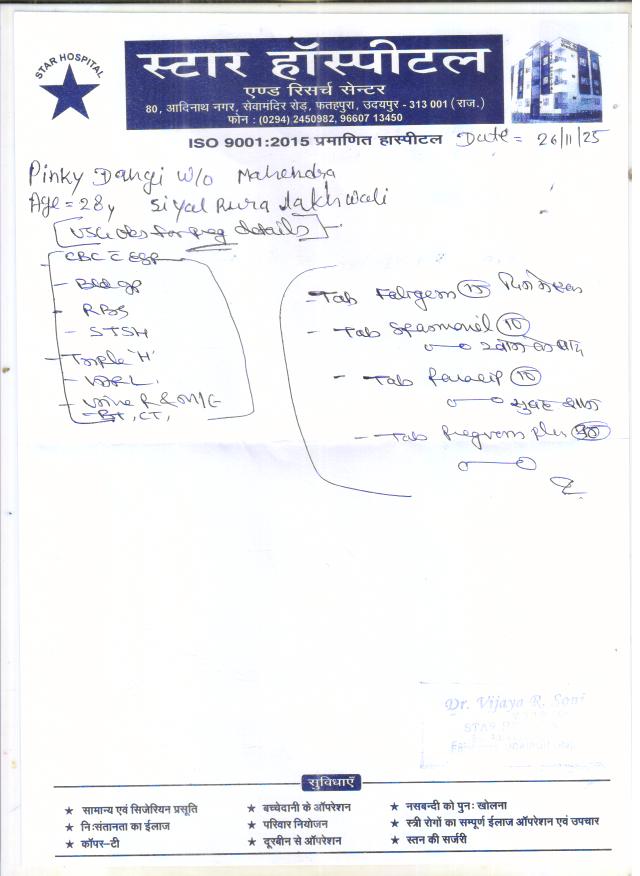 STAR HOSPITAL
स्टार हॉस्पीटल
एण्ड रिसर्च सेन्टर
80, आदिनाथ नगर, सेवामंदिर रोड़, फतहपुरा, उदयपुर - 313 001 (राज.)
फोन : (0294) 2450982, 96607 13450
ISO 9001:2015 प्रमाणित हास्पीटल Date = 26/11/25
Pinky Dangi w/o Mahendra
Age = 28y
USG obs for preg details
CBC
Bld gp
RBS
- STSH
Triple 'H'
- VDRL
- Urine R & M/E
- BT, CT,
- Tab 15
- Tab Spasmonil 10
- Tab 10
सुबह शाम
- Tab plus 30
Dr. Vijaya R. Soni
सुविधाएँ
★ सामान्य एवं सिजेरियन प्रसूति ★ बच्चेदानी के ऑपरेशन ★ नसबन्दी को पुनः खोलना
★ निःसंतानता का ईलाज ★ परिवार नियोजन ★ स्त्री रोगों का सम्पूर्ण ईलाज ऑपरेशन एवं उपचार
★ कॉपर-टी ★ दूरबीन से ऑपरेशन ★ स्तन की सर्जरी